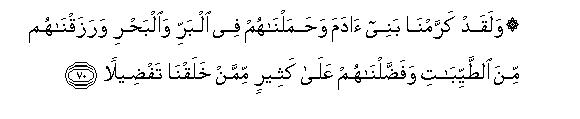 ۞ وَلَقَدْ كَرَّمْنَا بَنِىٓ ءَادَمَ وَحَمَلْنَـٰهُمْ فِى ٱلْبَرِّ وَٱلْبَحْرِ وَرَزَقْنَـٰهُم
مِّنَ ٱلطَّيِّبَـٰتِ وَفَضَّلْنَـٰهُمْ عَلَىٰ كَثِيرٍ مِّمَّنْ خَلَقْنَا تَفْضِيلًا ٧٠